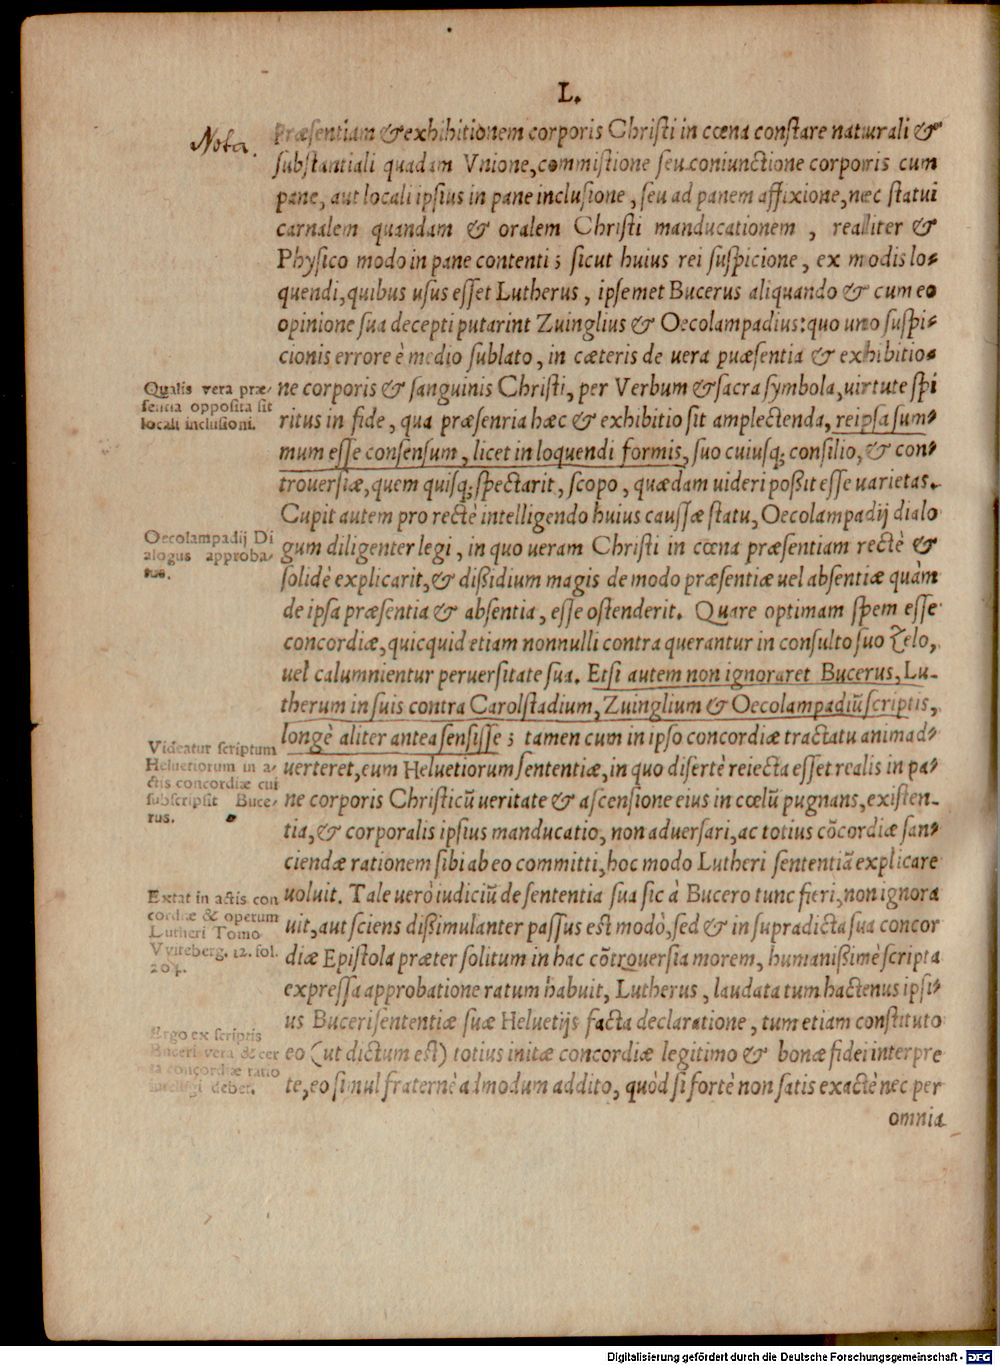 L.
Nota.
præsentiam & exhibitionem corporis Christi in cœna constare naturali &
substantiali quadam Vnione, commistione seu coniunctione corporis cum
pane, aut locali ipsius in pane inclusione, seu ad panem affixione, nec statui
carnalem quandam & oralem Christi manducationem, realiter &
Physico modo in pane contenti; sicut huius rei suspicione, ex modis lo-
quendi, quibus usus esset Lutherus, ipsemet Bucerus aliquando & cum eo
opinione sua decepti putarint Zuinglius & Oecolampadius: quo uno suspi-
cionis errore è medio sublato, in cæteris de uera puæsentia & exhibitio-
Qualis vera præ-
sentia opposita sit
locali inclusioni.
ne corporis & sanguinis Christi, per Verbum & sacra symbola, uirtute spi
ritus in fide, qua præsenria hæc & exhibitio sit amplectenda, reipsa sum-
mum esse consensum, licet in loquendi formis, suo cuiusq; consilio, & con-
trouersiæ, quem quisq; spectarit, scopo, quædam uideri poßit esse uarietas.
Cupit autem pro rectè intelligendo huius caussæ statu, Oecolampadij dialo
Oecolampadij Di
alogus approba-
tus.
gum diligenter legi, in quo ueram Christi in cœna præsentiam rectè &
solidè explicarit, & dißidium magis de modo præsentiæ uel absentiæ quàm
de ipsa præsentia & absentia, esse ostenderit. Quare optimam spem esse
concordiæ, quicquid etiam nonnulli contra querantur in consulto suo Zelo,
uel calumnientur peruersitate sua. Etsi autem non ignoraret Bucerus, Lu-
therum in suis contra Carolstadium, Zuinglium & Oecolampadiū scriptis,
longè aliter antea sensisse; tamen cum in ipso concordiæ tractatu animad-
Videatur scriptum
Heluetiorum in a-
ctis concordiæ cui
subscripsit Buce-
rus.
uerteret, eum Heluetiorum sententiæ, in quo disertè reiecta esset realis in pa-
ne corporis Christi cū ueritate & ascensione eius in cœlū pugnans, existen-
tia, & corporalis ipsius manducatio, non aduersari, ac totius cōcordiæ san-
ciendæ rationem sibi ab eo committi, hoc modo Lutheri sententiā explicare
Extat in actis con
cordiæ & operum
Lutheri Tomo
Vviteberg. 12. fol.
205.
uoluit. Tale uerò iudiciū de sententia sua sic à Bucero tunc fieri, non ignora
uit, aut sciens dißimulanter passus est modò, sed & in supradicta sua concor
diæ Epistola præter solitum in hac cōtrouersia morem, humanißimè scripta
expressa approbatione ratum habuit, Lutherus, laudata tum hactenus ipsi-
us Buceri sententiæ suæ Heluetijs facta declaratione, tum etiam constituto
Ergo ex scriptis
Buceri vera & cer
ta concordiæ ratio
intelligi debet.
eo (ut dictum est) totius initæ concordiæ legitimo & bonæ fidei interpre
te, eo simul fraternè admodum addito, quòd si fortè non satis exactè nec per
omnia
Digitalisierung gefördert durch die Deutsche Forschungsgemeinschaft - DFG